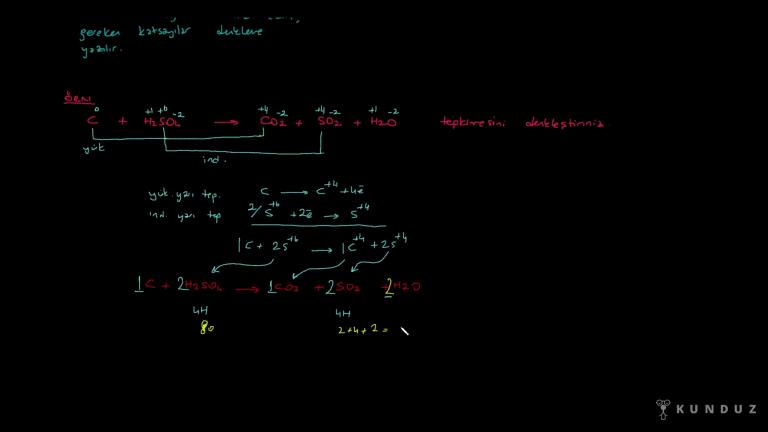 gereken katsayılar denkleme
yazılır.
ÖRN
C⁰ + H₂⁺¹S⁺⁶O₄⁻² → C⁺⁴O₂⁻² + S⁺⁴O₂⁻² + H₂⁺¹O⁻² tepkimesini denkleştiriniz.
yük
ind.
yük. yarı tep. C → C⁺⁴ + 4ē
ind. yarı tep 2/ S⁺⁶ + 2ē → S⁺⁴
1C + 2S⁺⁶ → 1C⁺⁴ + 2S⁺⁴
1C + 2H₂SO₄ → 1CO₂ + 2SO₂ + 2H₂O
4H 4H
8O 2+4+2=
KUNDUZ